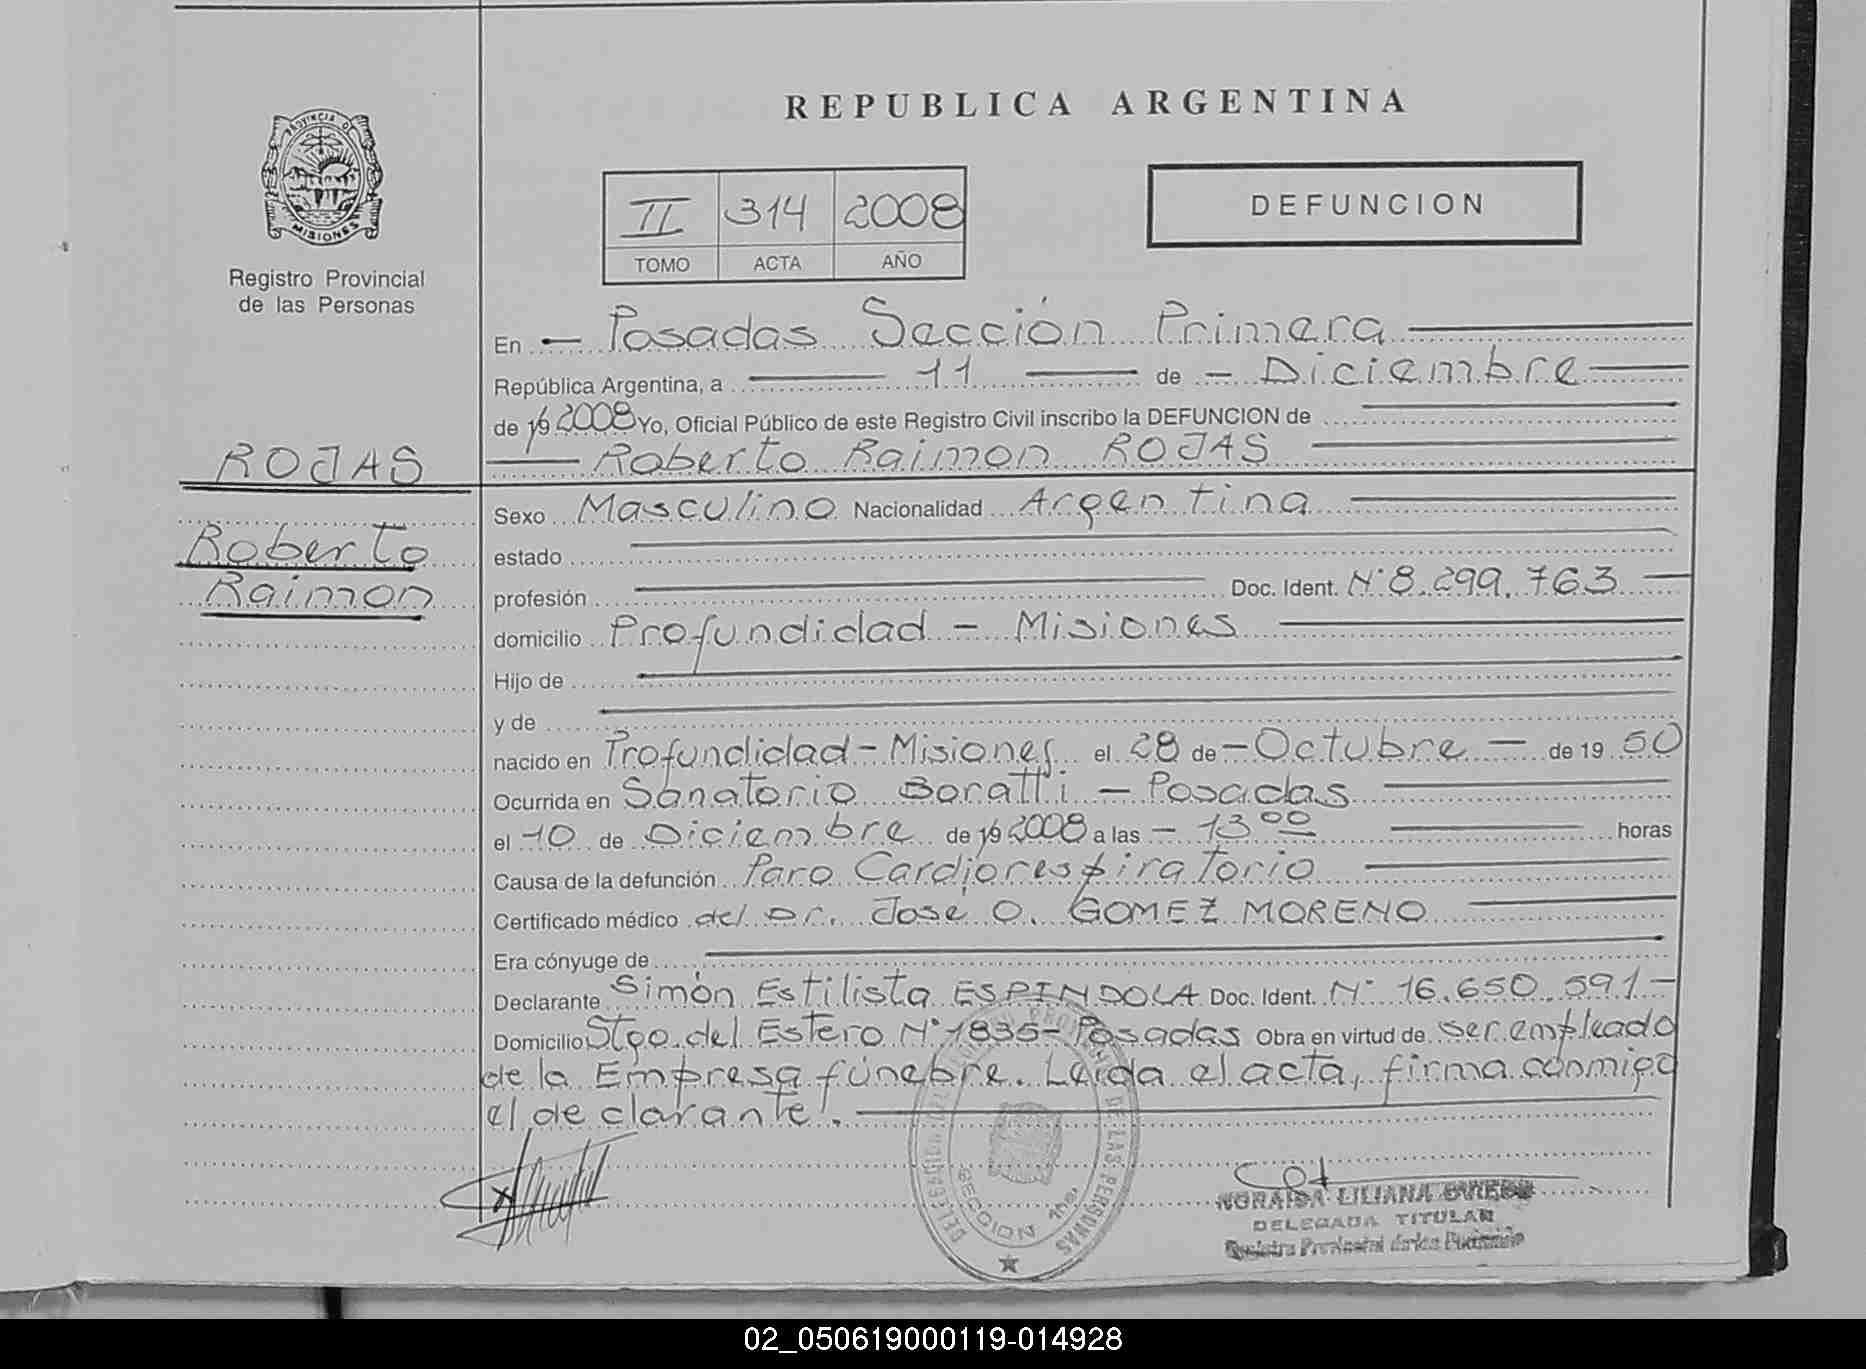 REPUBLICA ARGENTINA
PROVINCIA DE
MISIONES
Registro Provincial
de las Personas
II 314 2008
TOMO ACTA AÑO
DEFUNCION
En Posadas Sección Primera
República Argentina, a 11 de Diciembre
de 19 2008 Yo, Oficial Público de este Registro Civil inscribo la DEFUNCION de
Roberto Raimon ROJAS
ROJAS
Roberto
Raimon
Sexo Masculino Nacionalidad Argentina
estado
profesión Doc. Ident. N° 8.299.763
domicilio Profundidad - Misiones
Hijo de
y de
nacido en Profundidad - Misiones el 28 de Octubre de 19 50
Ocurrida en Sanatorio Boratti - Posadas
el 10 de Diciembre de 19 2008 a las 13 00 horas
Causa de la defunción Paro Cardiorespiratorio
Certificado médico del Dr. José O. GOMEZ MORENO
Era cónyuge de
Declarante Simón Estilista ESPINDOLA Doc. Ident. N° 16.650.591.-
Domicilio Stgo. del Estero N° 1835 - Posadas Obra en virtud de ser empleado
de la Empresa fúnebre. Leída el acta, firma conmigo
el declarante.
DE LAS PERSONAS
SECCION 1ra.
NORAIDA LILIANA OVIEDO
DELEGADA TITULAR
02_050619000119-014928